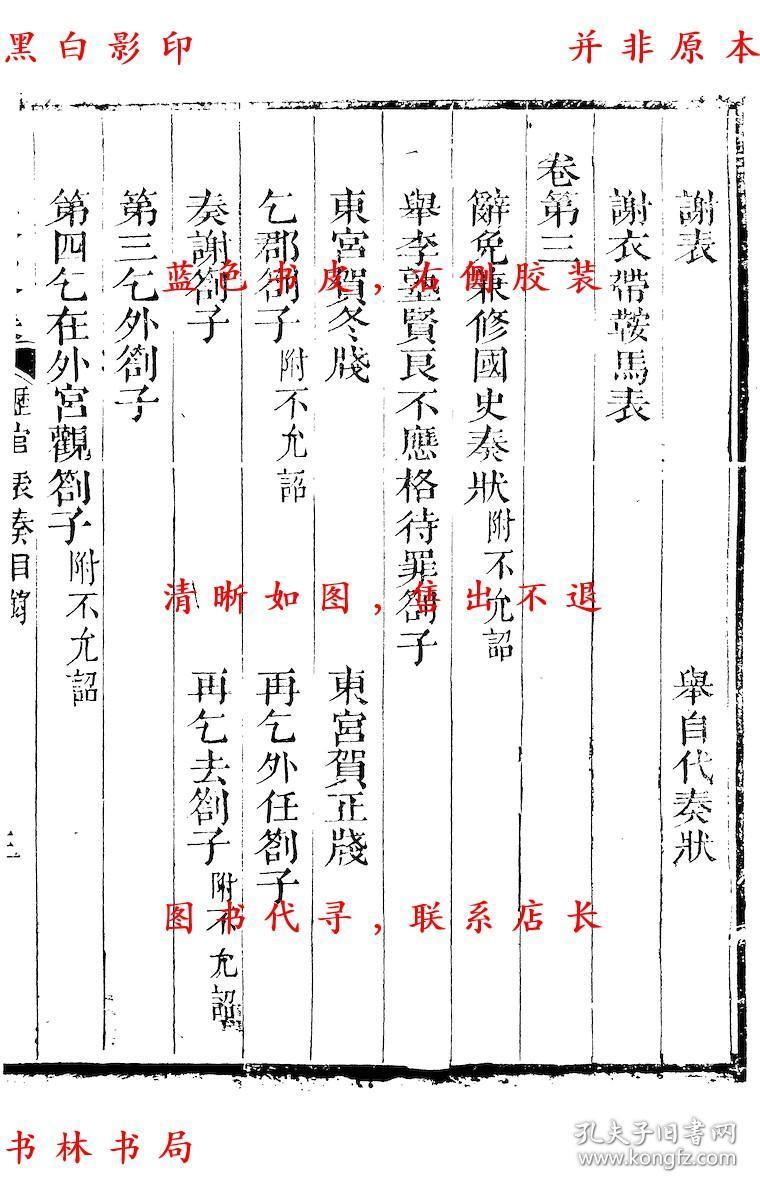 黑白影印
并非原本
謝表　舉自代奏狀
謝衣帶鞍馬表
卷第三
辭免兼修國史奏狀附不允詔
舉李塾賢良不應格待罪劄子
東宮賀冬牋　東宮賀正牋
乞郡劄子附不允詔　再乞外任劄子
奏謝劄子　再乞去劄子附不允詔
第三乞外劄子
第四乞在外宮觀劄子附不允詔
歷官表奏目錄　三
蓝色书皮,右侧胶装
清晰如图,售出不退
图书代寻,联系店长
书林书局
孔夫子旧书网
www.kongfz.com